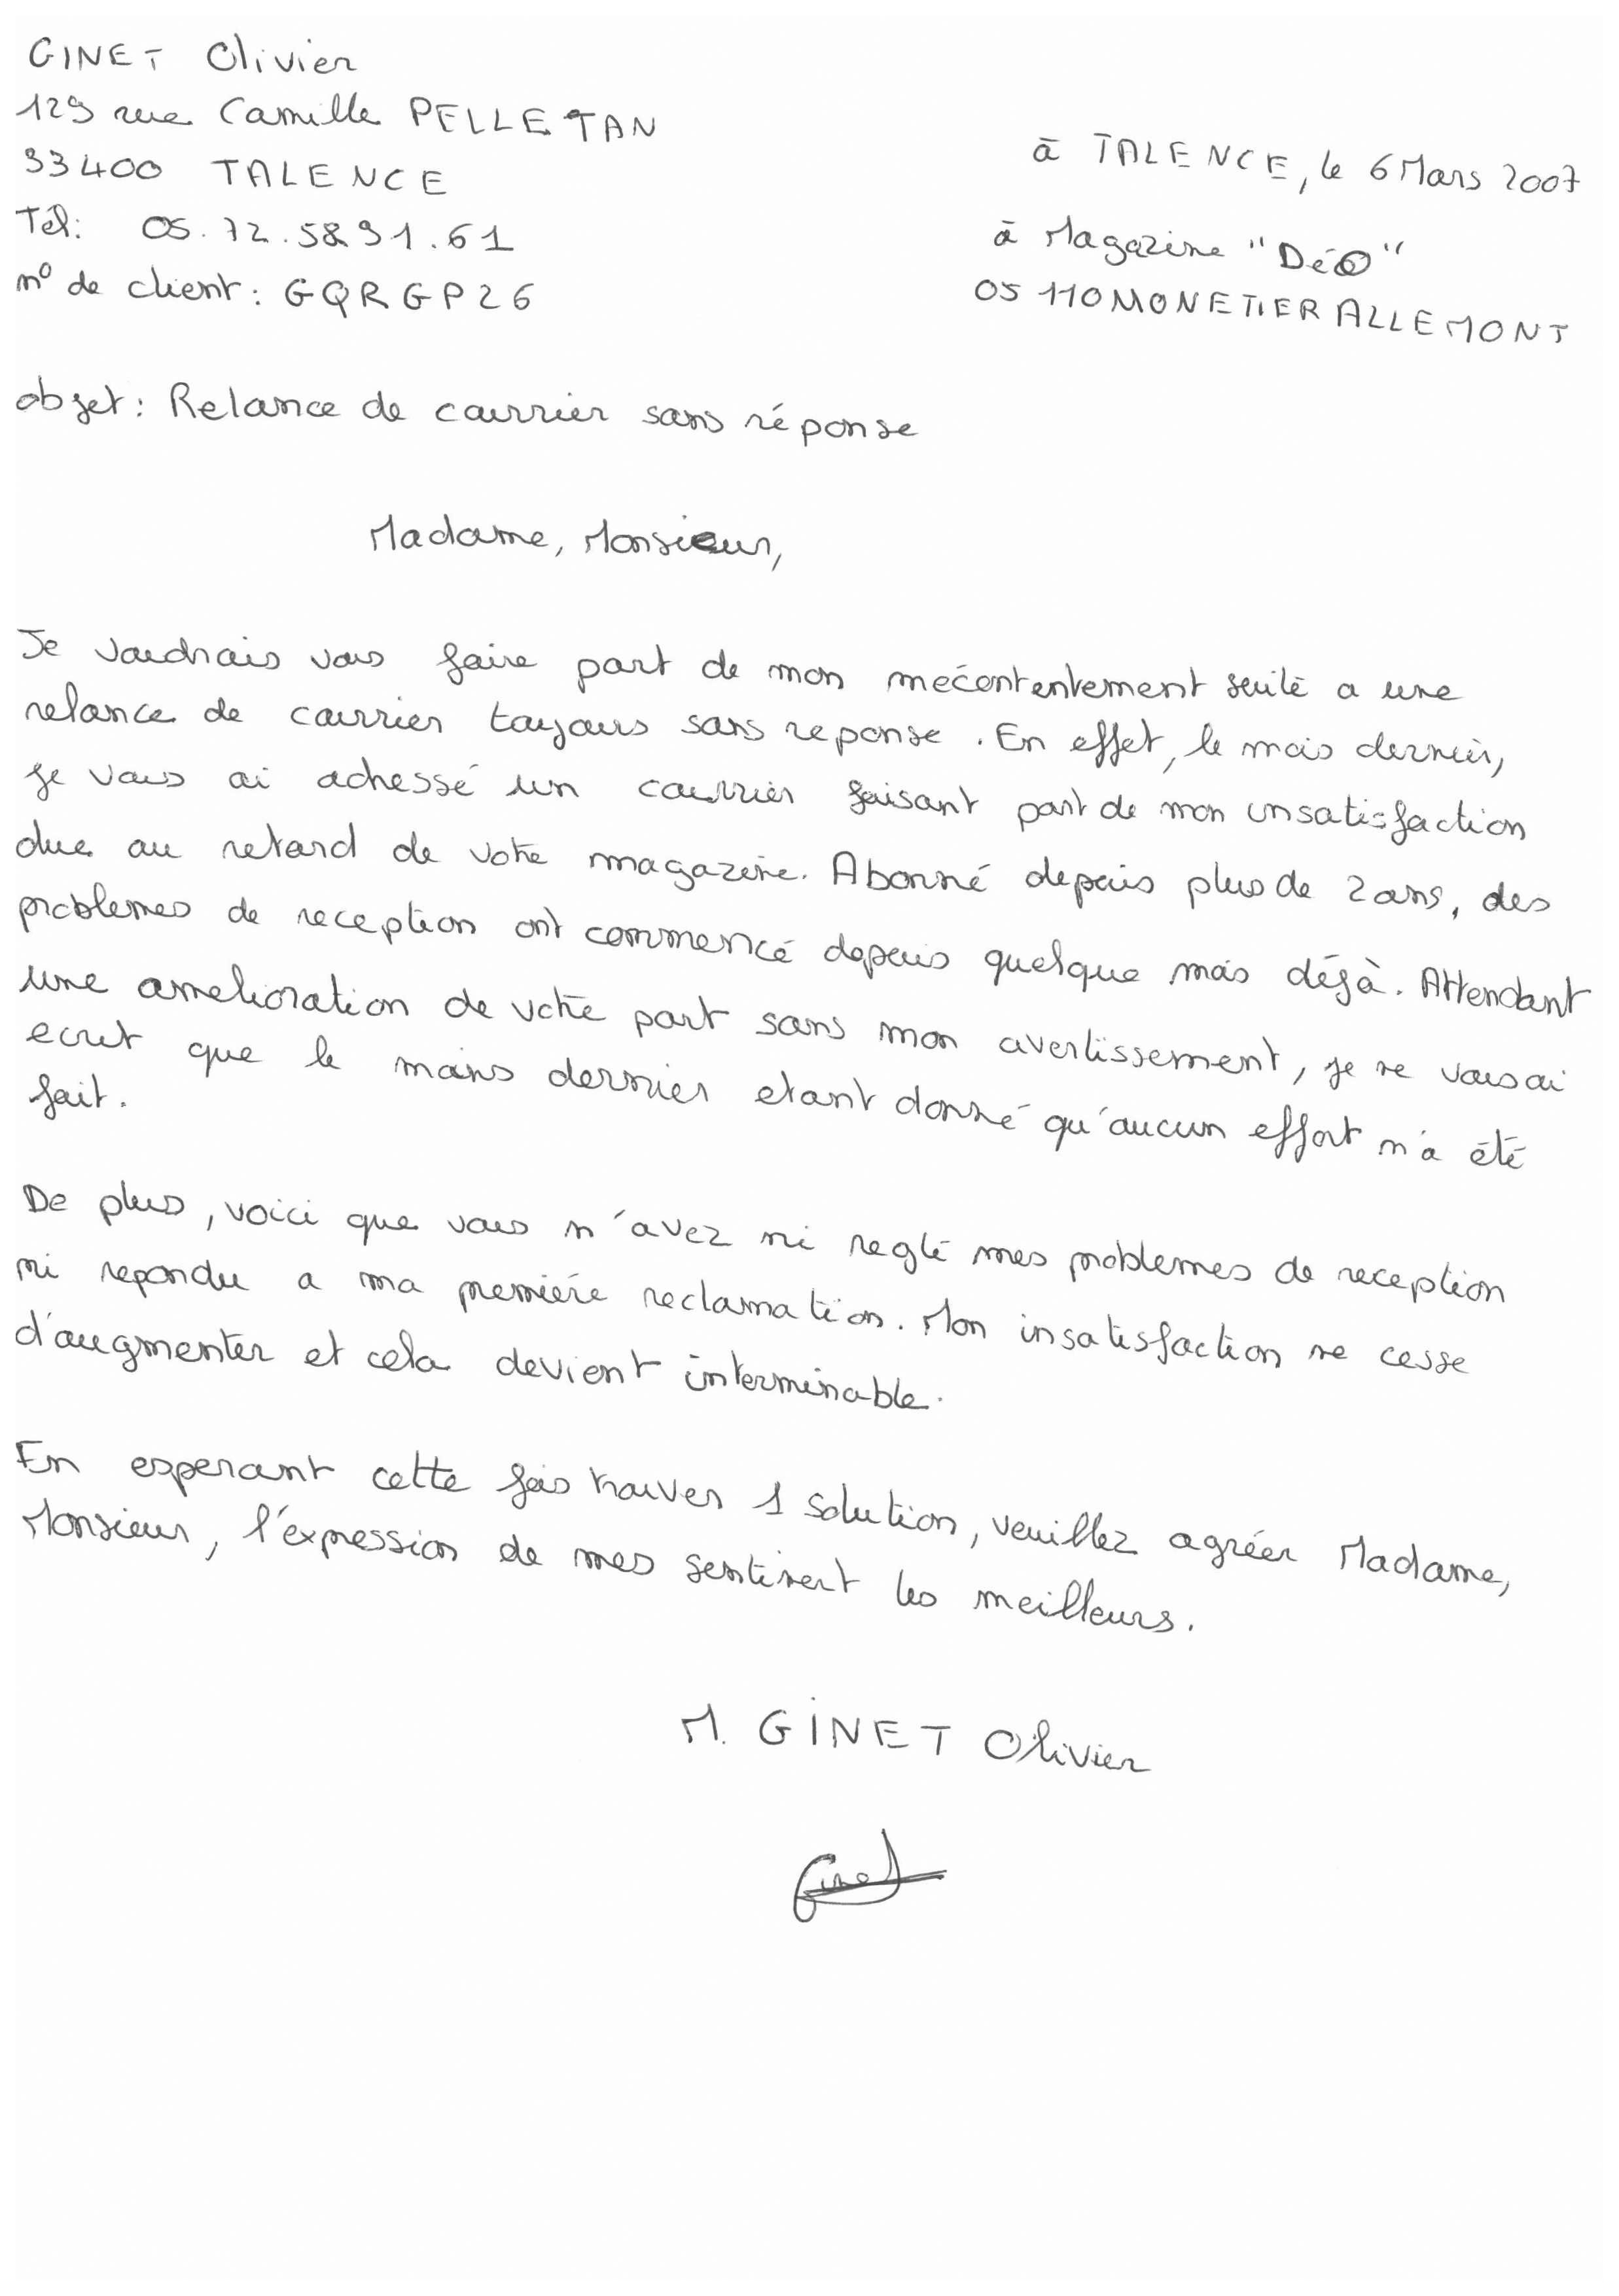 GINET Olivier
129 rue Camille PELLETAN
33400 TALENCE
Tél: 05.72.58 91.61
n° de client: GQRGP26
à TALENCE, le 6 Mars 2007
à Magazine "DéO"
05 110 MONETIER ALLEMONT
objet: Relance de courrier sans réponse
Madame, Monsieur,
Je voudrais vous faire part de mon mécontentement suite a une
relance de courrier toujours sans reponse. En effet, le mois dernier,
je vous ai adressé un courrier faisant part de mon insatisfaction
due au retard de votre magazine. Abonné depuis plus de 2 ans, des
problemes de reception ont commencé depuis quelque mois déjà. Attendant
une amelioration de votre part sans mon avertissement, je ne vous ai
ecrit que le moins dernier etant donné qu'aucun effort n'a été
fait.
De plus, voici que vous n'avez ni reglé mes problemes de reception
ni repondu a ma premiére reclamation. Mon insatisfaction ne cesse
d'augmenter et cela devient interminable.
En esperant cette fois trouver 1 solution, veuillez agréer Madame,
Monsieur, l'expression de mes sentiment les meilleurs.
M. GINET Olivier
Ginet